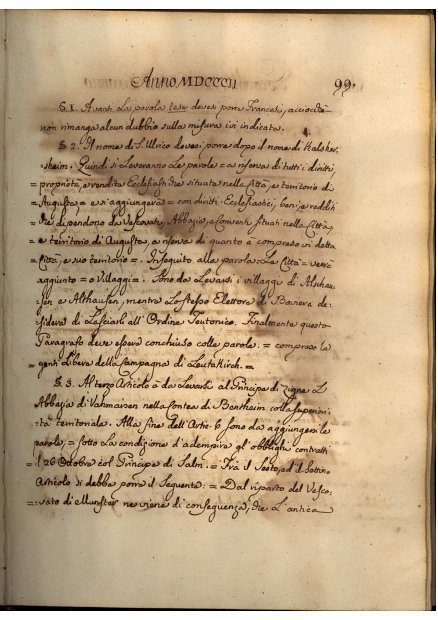 Anno MDCCCII
99.
§. 1. Avanti la parola tese devesi porre Francesi, acciocchè
non rimanga alcun dubbio sulla misura ivi indicata.
§. 2. Il nome di S. Ulrico devesi porre dopo il nome di
sheim. Quindi si leveranno le parole = a riserva di tutti i diritti,
= proprietà, e rendite Ecclesiastiche situate nella Città, e territorio di
Augusta = e vi aggiungerà = con diritti Ecclesiastici, beni, e redditi
che dipendono da Vescovati, Abbazie, e Conventi situati nella Città,
= e territorio di Augusta, a riserva di quanto è compreso in detta
= Città, e suo territorio =. In seguito alla parola = Le Città = verrà
aggiunto = o Villaggi =. Sono da levarsi i villaggi di
sen e Althausen, mentre lo stesso Elettore di Baviera de-
sidera di lasciarli all'Ordine Teutonico. Finalmente questo
Paragrafo deve essere conchiuso colle parole: = compreso la
= genti libera della Campagna di Leutkirch. =
§. 3. Al terzo Articolo è da levarsi al Principe di L'
Abbazia di nella Contea di Bentheim colla superiori-
tà territoriale. Alla fine dell'Artic. 6 sono da aggiungersi le
parole, = sotto la condizione d'adempire gl'obblighi contratti
= il 26 Ottobre col Principe di Salm. = Fra il Sesto, ed il Settimo
Articolo si debba porre il Seguente: = Dal riparto del Vesco-
= vato di Munster ne viene di conseguenza, che l'antica